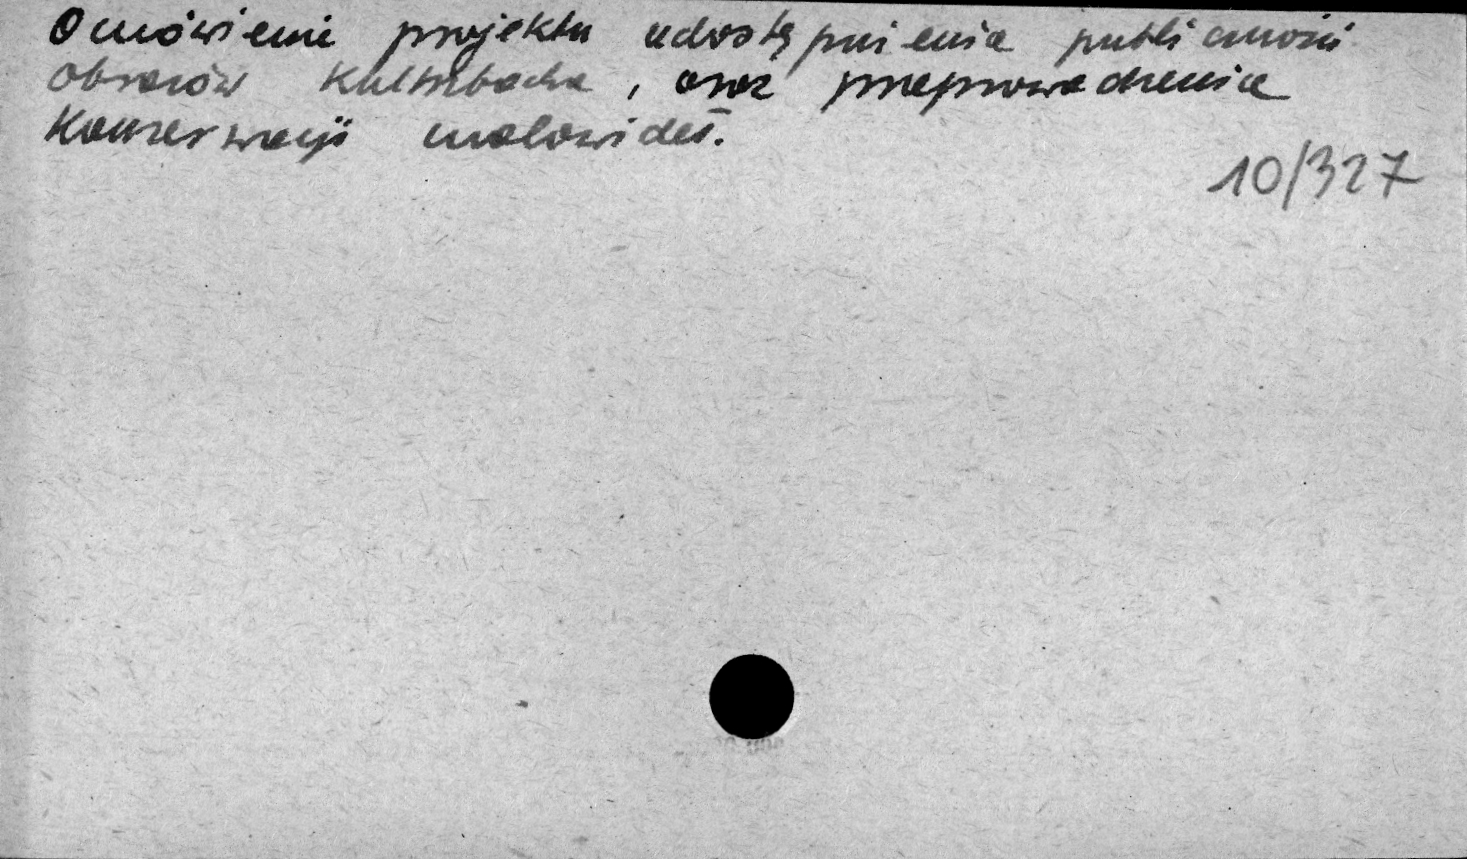 Omówienie projektu udostępnienia publiczności
obrazów Kulmbacha, oraz przeprowadzenia
Konserwacji malowideł.
10/327